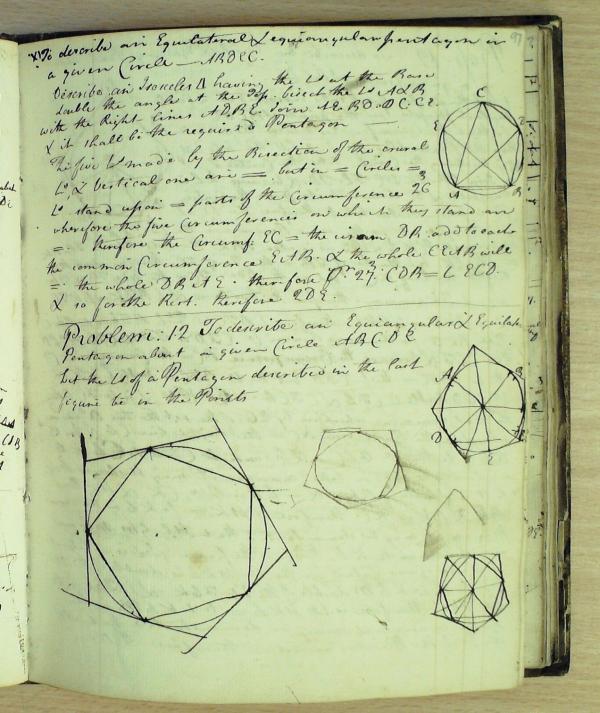 XI To describe an Equilateral & equiangular pentagon in
a given Circle — ABDEC.
Describe an Isosceles Δ having the Ls at the Base
double the angle at the Top. bisect the Ls
with the Right Lines Join AE. BD. DC. CE.
& it shall be the required Pentagon
The five Ls made by the Bisection of the crural
Ls & vertical one are = but in = Circles =
Ls stand upon = parts of the Circumference 26
wherefore the five Circumferences on which they stand are
= therefore the Circumf. EC = the DB. add to each
the common Circumference EAB. & the whole CEAB will
= the whole DBAE. therefore Pr. 27. CDB = L ECD.
& so for the Rest. therefore 2DE.
Problem: 12 To describe an Equiangular & Equilat
Pentagon about a given Circle ABCDE
Let the Ls of a Pentagon described in the last
figure be in the Points
C
E
A
B
A
B
D
E